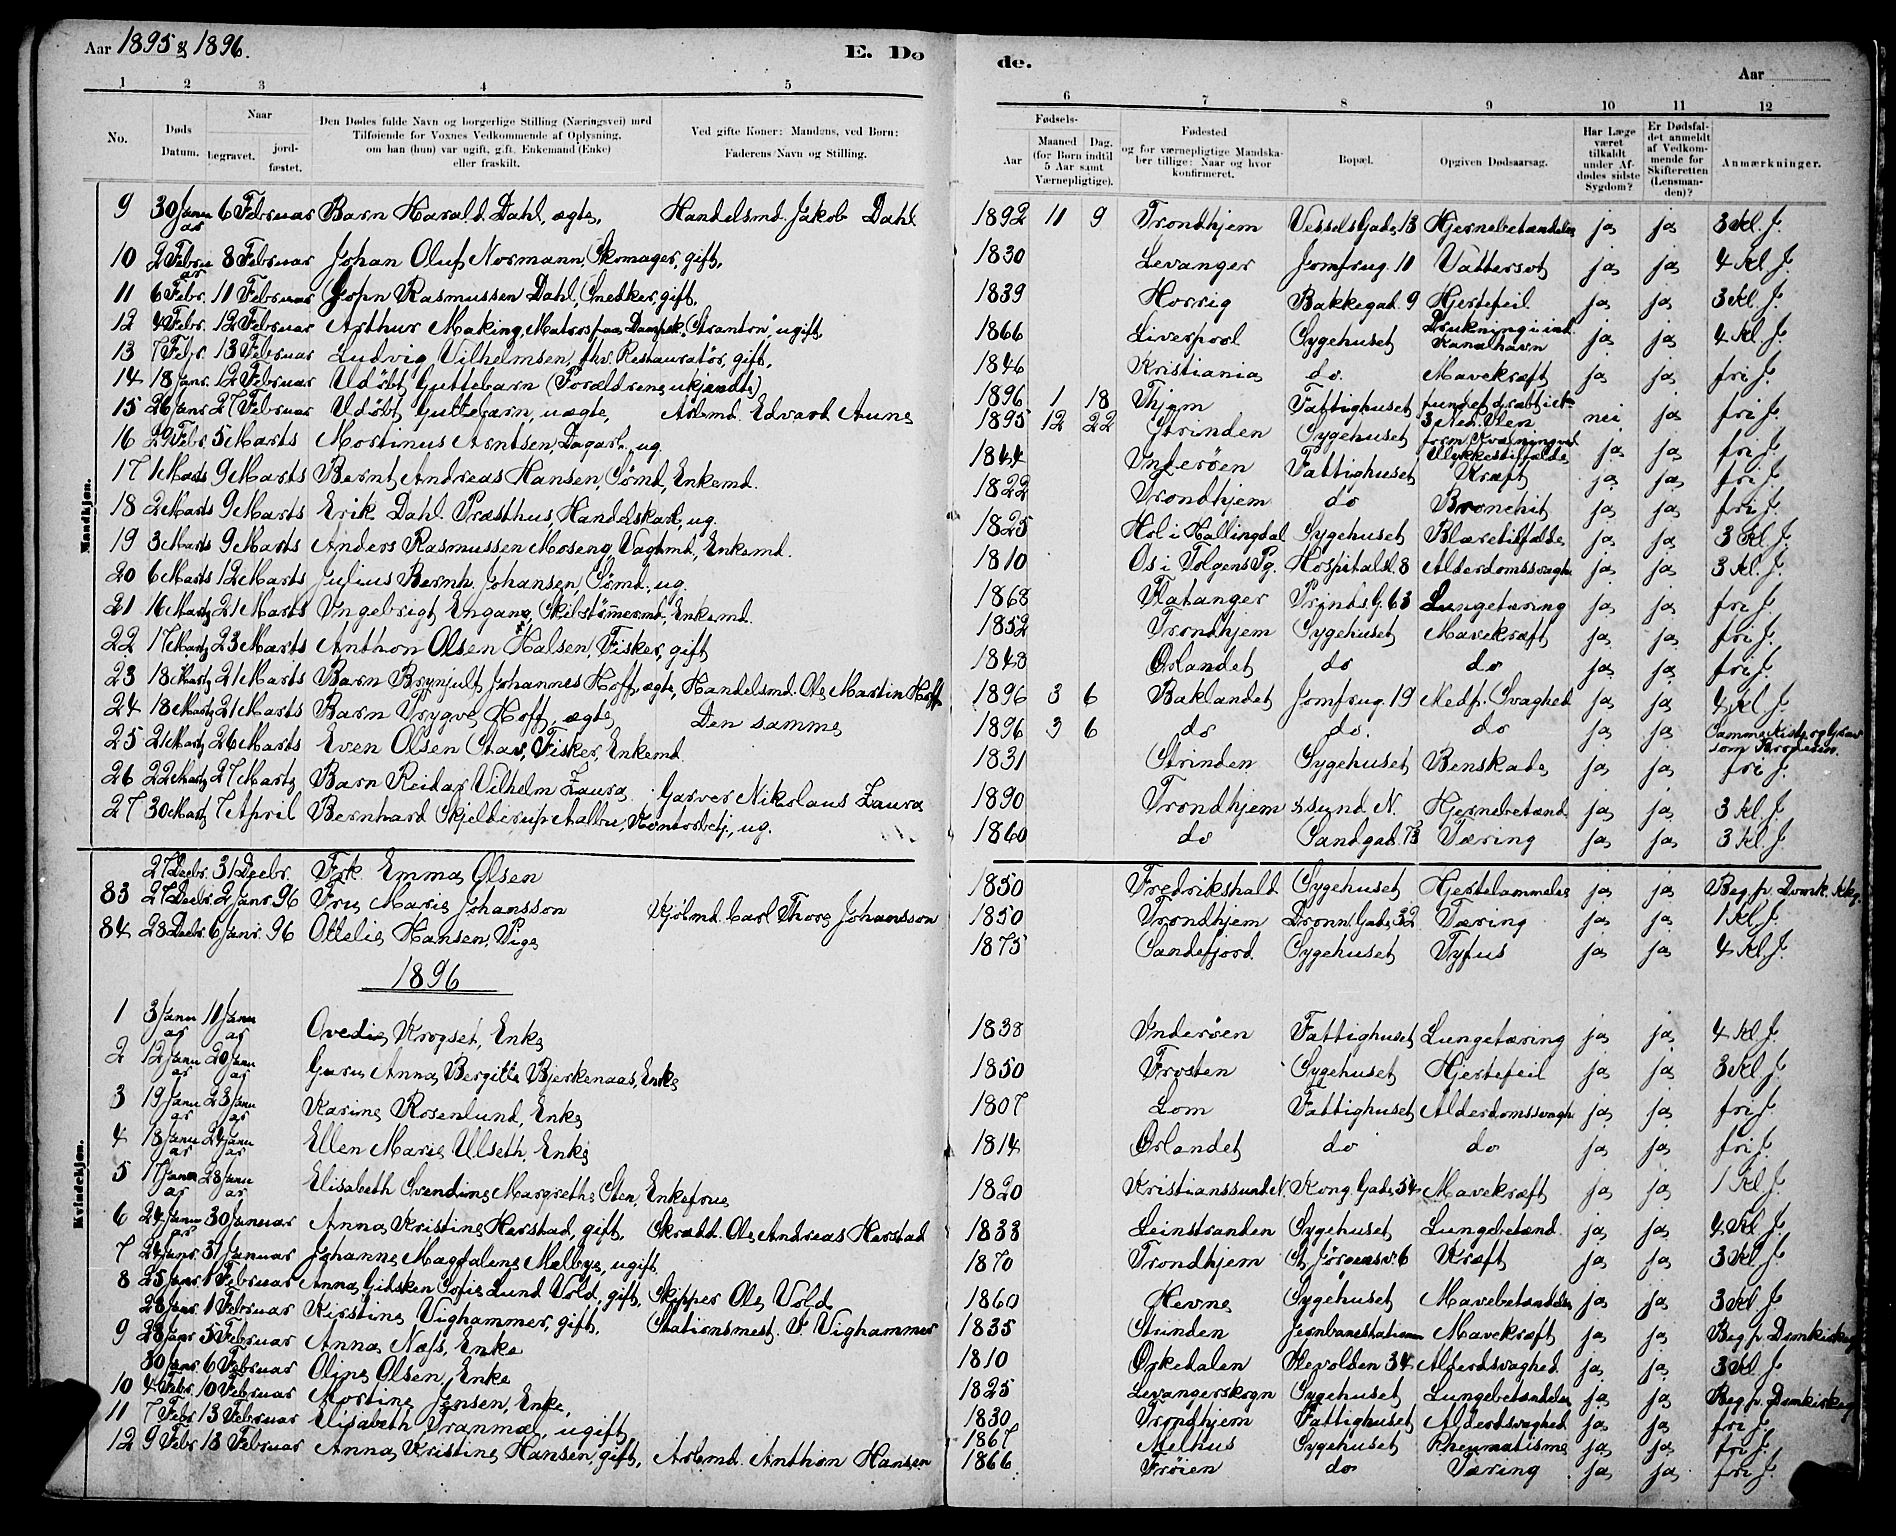 Aar 1895 & 1896.
E. Dø
de.
Aar
1 2 3 4 5
6 7 8 9 10 11 12
No.
Døds Datum.
Naar
begravet.
jordfæstet.
Den Dødes fulde Navn og borgerlige Stilling (Næringsvei) med Tilføiende for Voxnes Vedkommende af Oplysning, om han (hun) var ugift, gift, Enkemand (Enke) eller fraskilt.
Ved gifte Koner: Mandens, ved Børn: Faderens Navn og Stilling.
Fødsels-
Aar
Maaned Dag. (for Børn indtil 5 Aar samt Værnepligtige).
Fødested og for værnepligtige Mandskaber tillige: Naar og hvor konfirmeret.
Bopæl.
Opgiven Dødsaarsag.
Har Læge været tilkaldt under Afdødes sidste Sygdom?
Er Dødsfaldet anmeldt af Vedkommende for Skifteretten (Lensmanden)?
Anmærkninger.
Mandkjøn.
9 30 Januar 6 Februar Barn Harald Dahl, ægte, Handelsmd. Jakob Dahl 1892 11 9 Trondhjem Vessels Gade 13 Hjernebetændelse ja ja 3 Kl. J.
10 2 Februar 8 Februar Johan Oluf Normann, Skomager, gift, 1830 Levanger Jomfrug. 11 Vattersot ja ja 4 Kl J.
11 6 Febr. 11 Februar John Rasmussen Dahl, Snedker, gift, 1839 Horrig Bakkegad. 9 Hjertefeil ja ja 3 Kl. J.
12 4 Febr. 12 Februar Arthur Making, Matros paa Dampsk. "Stranton", ugift, 1866 Liverpool Sygehuset Drukning i ind. Kanalhavn ja ja 4 Kl J.
13 7 Febr. 13 Februar Ludvig Vilhelmsen, fhv. Restauratør, gift, 1846 Kristiania do. Mavekræft ja ja fri J.
14 18 Janr. 12 Februar Udøbt Guttebarn (Forældrene ukjendte) 1896 1 18 Thjem Fattighuset fundet dræbt i et
15 26 Janr 27 Februar Udøbt Guttebarn, uægte, Arbmd. Edvard Aune 1895 12 22 Strinden Sygehuset nei ja fri J.
16 29 Febr. 5 Marts Mortinus Arntsen, Dagarb. ug. 1844 Inderøen Fattighuset Ulykkestilfælde ja ja fri J.
17 1 Marts 9 Marts Bernt Andreas Hansen, Sømd, Enkemd. 1822 Trondhjem do Kræft ja ja fri J.
18 2 Marts 9 Marts Erik Dahl Præsthus, Handelskarl, ug. 1825 Hol i Hallingdal Sygehuset Bronchit ja ja fri J.
19 3 Marts 9 Marts Anders Rasmussen Moseng, Vagtmd, Enkemd. 1810 Os i Tolgens Pg. Hospitalsl. 8 Blæretilfælde ja ja 3 Kl J.
20 6 Marts 12 Marts Julius Bernh. Johansen, Sømd. ug. 1868 Flatanger Prinds. G. 63 Alderdomssvaghe ja ja 3 Kl. J.
21 16 Marts 21 Marts Ingebrigt Engang, Skibstømmermd, Enkemd. 1852 Trondhjem Sygehuset Lungetæring ja ja fri J.
22 17 Marts 23 Marts Anthon Olsen Halsen, Fisker, gift 1848 Ørlandet do Mavekræft ja ja fri J.
23 18 Marts 21 Marts Barn Brynjulf Johannes Hoff, ægte, Handelsmd. Ole Martin Hoff 1896 3 6 Baklandet Jomfrug. 19 Medf. Svaghed ja ja 4 Kl J
24 18 Marts 21 Marts Barn Trygve Hoff, ægte, Den samme 1896 3 6 do do. do ja ja Samme Kiste og Grav som Broderen.
25 21 Marts 26 Marts Even Olsen Stav, Fisker, Enkemd. 1831 Strinden Sygehuset Benskade ja ja fri J.
26 22 Marts 27 Marts Barn Reidar Vilhelm Laura Garver Nikolaus Laura 1890 Trondhjem Hjernebetænd. ja ja 3 Kl. J.
27 30 Marts 7 April Bernhard Skjelderup Aalbu, Kontorbetj., ug. 1860 do Sandgad. 73 Tæring ja ja 3 Kl. J.
Kvindekjøn.
27 Decbr. 31 Decbr. Frk. Emma Olsen 1850 Fredrikshald Sygehuset Hjertelammelse ja ja Beg. p. Domk. Kkg.
83 27 Decbr. 2 Janr 96 Fru Marie Johansson Kjølmd. Carl Thore Johansson 1850 Trondhjem Dronn. Gade 32 Tæring ja ja 1 Kl J.
84 28 Decbr. 6 Janr. 96 Ottelie Hansen, Pige 1875 Sandefjord Sygehuset Tyfus ja ja 4 Kl. J.
1896
1 3 Januar 11 Januar Ovedie Krogset, Enke 1838 Inderøen Fattighuset Lungetæring ja ja 4 Kl J.
2 12 Januar 20 Januar Guru Anna Bergitte Bjerkenaas, Enke 1850 Frosten Sygehuset Hjertefeil ja ja 3 Kl J.
3 19 Januar 23 Januar Karine Rosenlund, Enke 1807 Lom Fattighuset Alderdomssvagh ja ja fri J.
4 18 Januar 24 Januar Ellen Marie Ulseth, Enke 1814 Ørlandet do do ja ja fri J.
5 17 Januar 28 Januar Elisabeth Svendine Margrethe Sten, Enkefrue 1820 Kristianssund N. Kong. Gade 54 Mavekræft ja ja 1 Kl J.
6 24 Januar 30 Januar Anna Kristine Harstad, gift, Skrædd. Ole Andreas Harstad 1833 Leinstranden Sygehuset Lungebetænd. ja ja 4 Kl J.
7 24 Janr. 31 Januar Johanne Magdalene Melbye, ugift. 1870 Trondhjem St. Jørgensv. 6 Kræft ja ja 3 Kl J.
8 25 Janr. 1 Februar Anna Gidsken Sofie Lund Vold, gift, Skipper Ole Vold 1860 Hevne Sygehuset Mavebetændelse ja ja 3 Kl J
28 Janr. 1 Februar Kirstine Vighammer, gift, Stationsmest. F. Vighammer 1835 Strinden Jernbanestationen Mavekræft ja ja Beg. p. Domkirkeg
9 28 Janr 5 Februar Anna Næss, Enke 1810 Orkedalen Ilevolden 34 Alderdsvaghed ja ja 3 Kl J
30 Janr. 6 Februar Oline Olsen, Enke 1825 Levangerskogn Sygehuset Lungebetændelse ja ja Beg. p. Domkirkeg
10 4 Febr. 10 Februar Mortine Jensen, Enke, 1830 Trondhjem Fattighuset Alderdsvaghed ja ja fri J.
11 7 Febr 13 Februar Elisabeth Tranmæl, ugift 1867 Melhus Sygehuset Rheumatisme ja ja fri J.
12 9 Febr 18 Februar Anna Kristine Hansen, gift, Arbmd. Anthon Hansen 1866 Frøien do Tæring ja ja fri J.